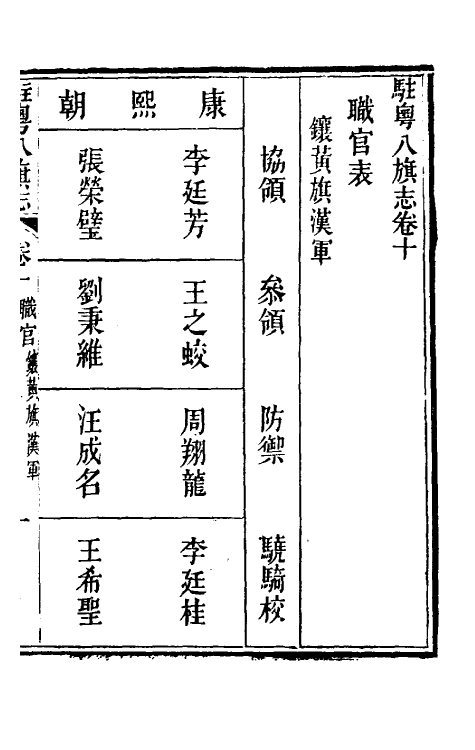 駐粵八旗志卷十
職官表
鑲黃旗漢軍
協領　叅領　防禦　驍騎校
康熙朝
李廷芳　王之蛟　周翔龍　李廷桂
張榮璧　劉秉維　汪成名　王希聖
駐粵八旗志　卷十　職官　鑲黃旗漢軍　一